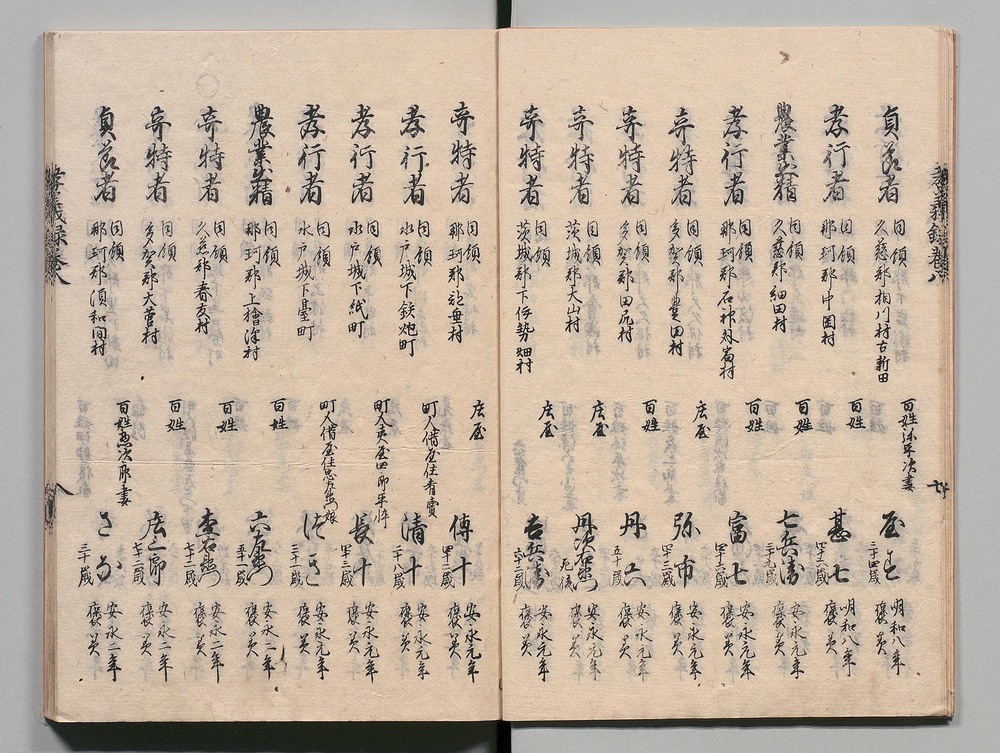 貞節者 同領 久慈郡相川村古新田 百姓弥平次妻 三十四歳 明和八年 褒美
孝行者 同領 那珂郡中里村 百姓 甚七 四十六歳 明和八年 褒美
農業出精 同領 久慈郡細田村 百姓 七兵衛 三十九歳 安永元年 褒美
孝行者 同領 那珂郡石神外宿村 百姓 富七 四十六歳 安永元年 褒美
奇特者 同領 多賀郡豊田村 庄屋 弥市 四十三歳 安永元年 褒美
奇特者 同領 多賀郡田尻村 百姓 丹六 五十歳 安永元年 褒美
奇特者 同領 茨城郡大山村 庄屋 丹次衛門 死後 安永元年 褒美
奇特者 同領 茨城郡下伊勢畑村 庄屋 吉兵衛 六十二歳 安永元年 褒美
奇特者 同領 那珂郡 村 庄屋 傳十 四十一歳 安永元年 褒美
孝行者 同領 水戸城下鉄炮町 町人借屋住青売 清十 二十八歳 安永元年 褒美
孝行者 同領 水戸城下紙町 町人 屋四郎平忰 長十 四十三歳 安永元年 褒美
孝行者 同領 水戸城下臺町 町人借屋住忠左衛門娘 三十一歳 安永元年 褒美
農業出精 同領 那珂郡上檜澤村 百姓 六左衛門 五十一歳 安永二年 褒美
奇特者 同領 久慈郡春友村 百姓 杢右衛門 七十二歳 安永二年 褒美
奇特者 同領 多賀郡大菅村 百姓 庄三郎 七十三歳 安永二年 褒美
貞節者 同領 那珂郡須和間村 百姓惣次郎妻 さな 三十歳 安永二年 褒美
孝義録巻八